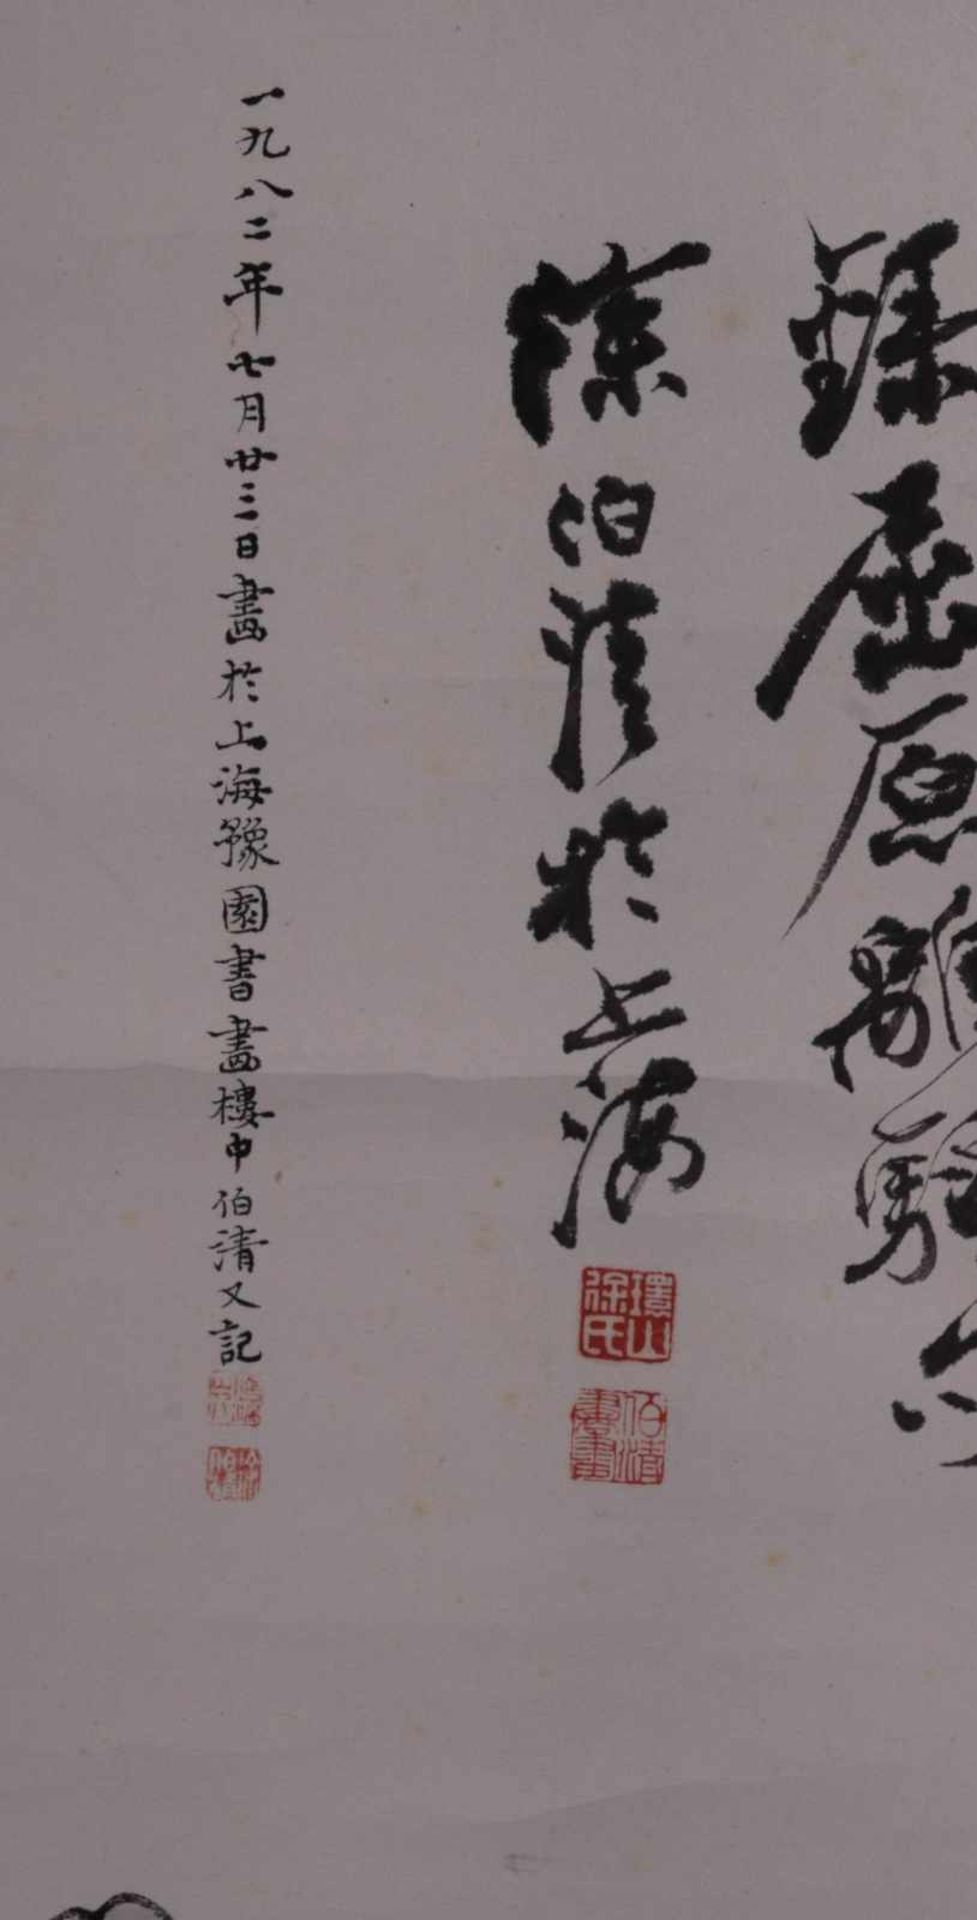 錄屈原離騷句
徐伯清於上海
環山徐氏
伯清書畫
一九八二年七月廿三日畫於上海豫園書畫樓中伯清又記